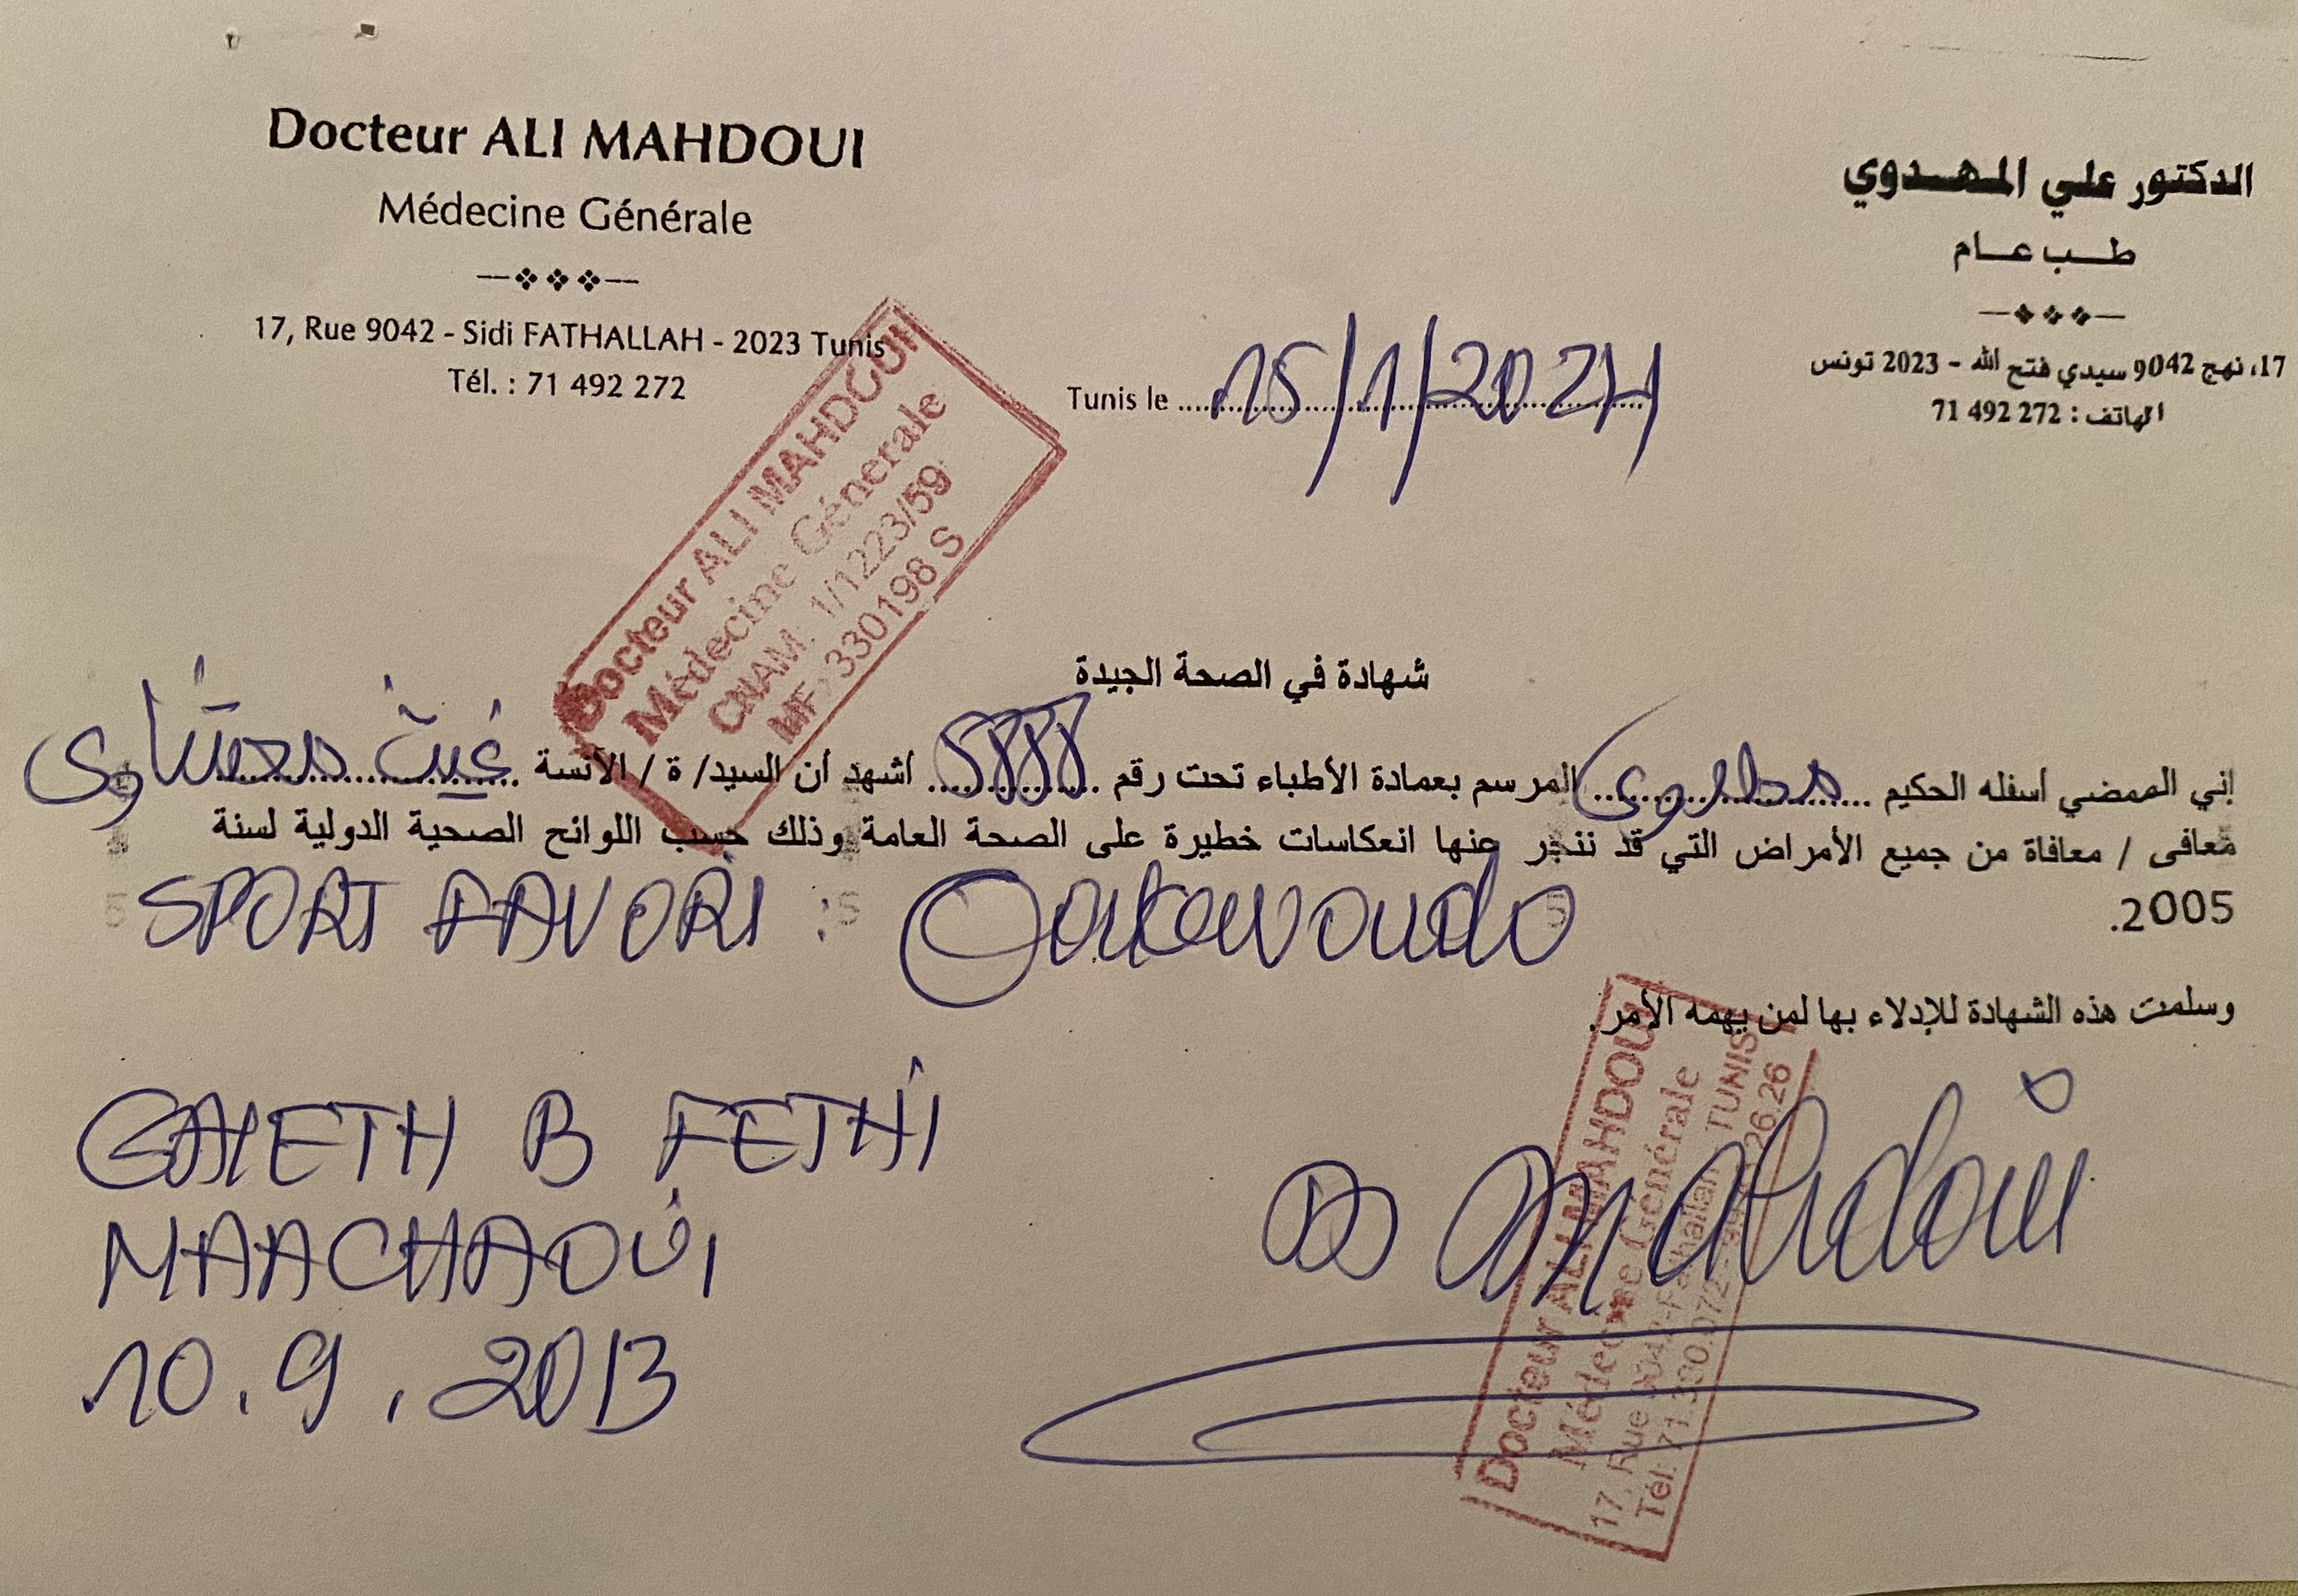 Docteur ALI MAHDOUI
Médecine Générale
17, Rue 9042 - Sidi FATHALLAH - 2023 Tunis
Tél. : 71 492 272
الدكتور علي المهدوي
طب عام
17، نهج 9042 سيدي فتح الله - 2023 تونس
الهاتف : 272 492 71
Tunis le 15/1/2024
Docteur ALI MAHDOUI
Médecine Génerale
CNAM: 1/1223/59
MF: 330198 S
شهادة في الصحة الجيدة
إني الممضي أسفله الحكيم مهداوي المرسم بعمادة الأطباء تحت رقم أشهد أن السيد/ ة / الآنسة غيث معشاوي
معافى / معافاة من جميع الأمراض التي قد تنجر عنها انعكاسات خطيرة على الصحة العامة وذلك حسب اللوائح الصحية الدولية لسنة
2005.
SPORT FAVORI :
وسلمت هذه الشهادة للإدلاء بها لمن يهمه الأمر.
GAIETH B FETHI
MAACHAOUI
10.9.2013
Dr Mahdoui
Docteur ALI MAHDOUI
Médecine Générale
17, Rue 9042-Fathallah TUNIS
Tél: 71.390.072 - 26.26